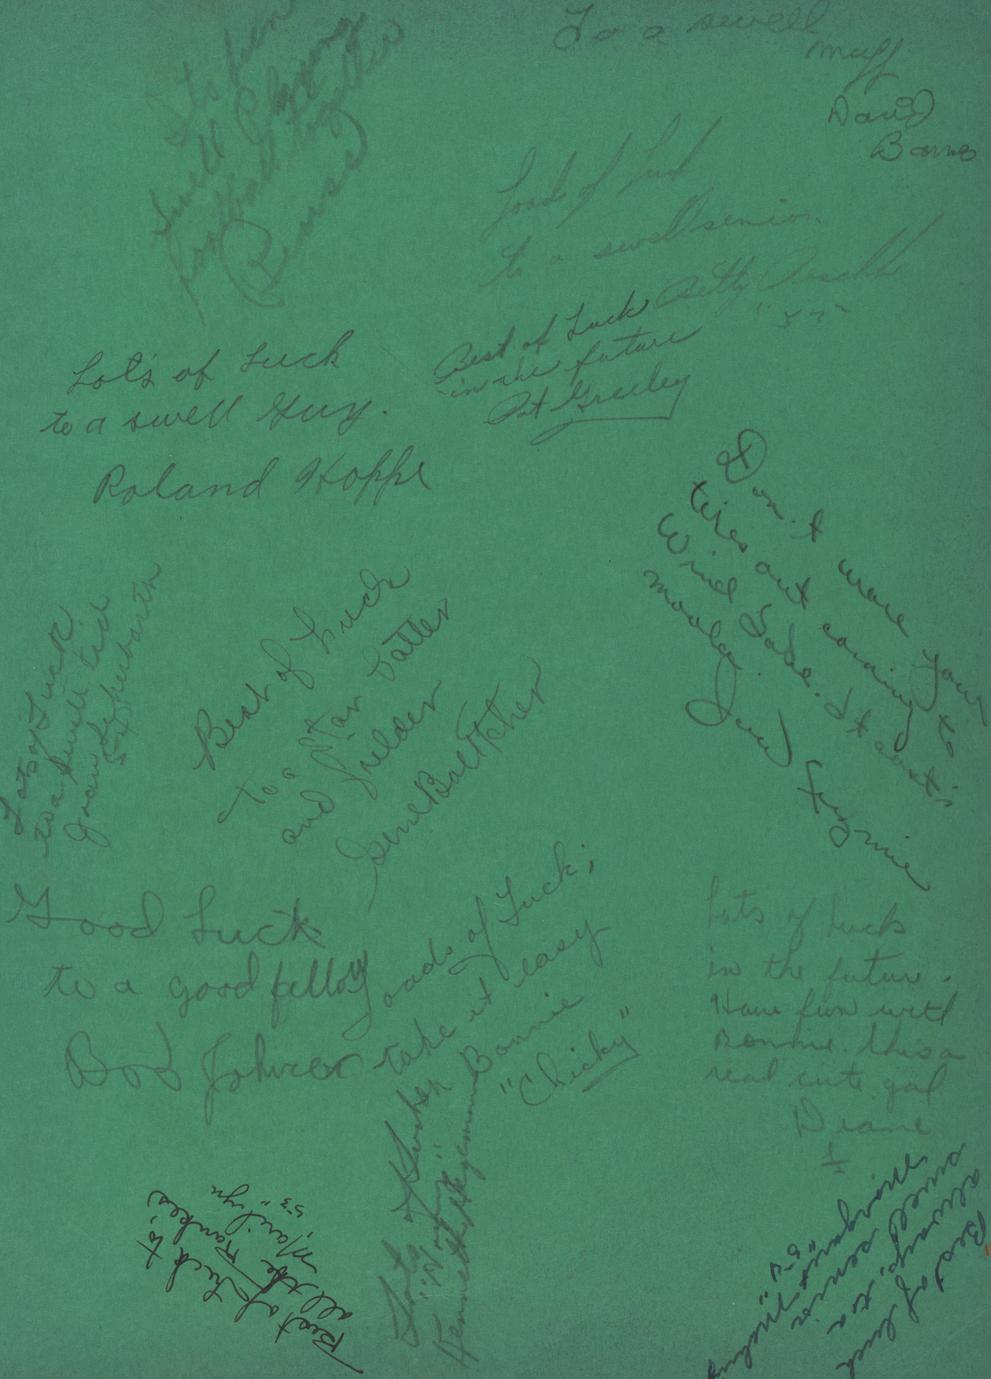 It's been
swell Playing
football together
To a swell
muff
David
Barnes
Loads of Luck
to a swell senior.
Betty
Best of Luck
in the future
Pat Greeley
Lot's of Luck
to a swell Guy.
Roland Hoppe
Don't ware your
tires out coming to
Wind Lake. It cost's
moola.
Lots of Luck
to a swell kid
Best of Luck
to a star batter
and fielder
Gene Boettcher
Good Luck
to a good fellow
Bob Johnson
Loads of Luck;
take it easy
Bonnie
"Chicky"
Lots of lucks
in the future.
Have fun with
Bonnie. This a
real cute gal
Diane
Lots of Luck
Kenneth Hegemann
Best of Luck to,
all the Yankee's
Marilyn
"53"
Best of luck
always to a
swell senior
Margaret